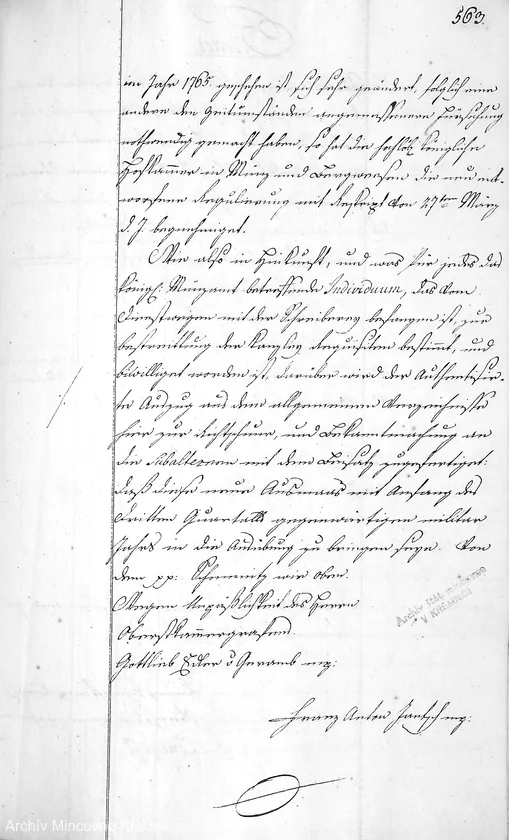 563.
im Jahr 1765 geschehen ist, sich sehr geändert, folglich eine
andere den Zeitumständen angemessenere Fürsehung
nothwendig gemacht haben, so hat die hochlöbl. königliche
Hofkammer in Münz und Bergwesen die neu ent-
worfene Regulierung mit Reskript von 27ten März
d. J. begnehmiget.
Wie also in Hinkunft, und was für jedes das
königl: Münzamt betreffende Individuum, das vom
Dienstwegen mit der Schreiberey befangen ist, zur
bestreittung der Kanzley Requisiten bestimmt, und
bewilliget worden ist, darüber wird der Authentisir-
te Auszug aus dem allgemeinen Verzeichnisse
hier zur Richtschnur, und Bekanntmachung an
die Subalternen mit dem Beisatz zugefertiget:
daß diese neue Ausmaas mit Anfang des
Dritten Quartals gegenwärtigen militar
Jahrs in die Ausübung zu bringen seye. Von
dem pp: Schemnitz wie oben.
Wegen Unpäßlichkeit des Herrn
Oberstkammergrafens.
Gottlieb Edler v Geramb mp:
Franz Anton Jantsch mp:
Archív
V KREMNICI
Archív Mincovne Kremnica